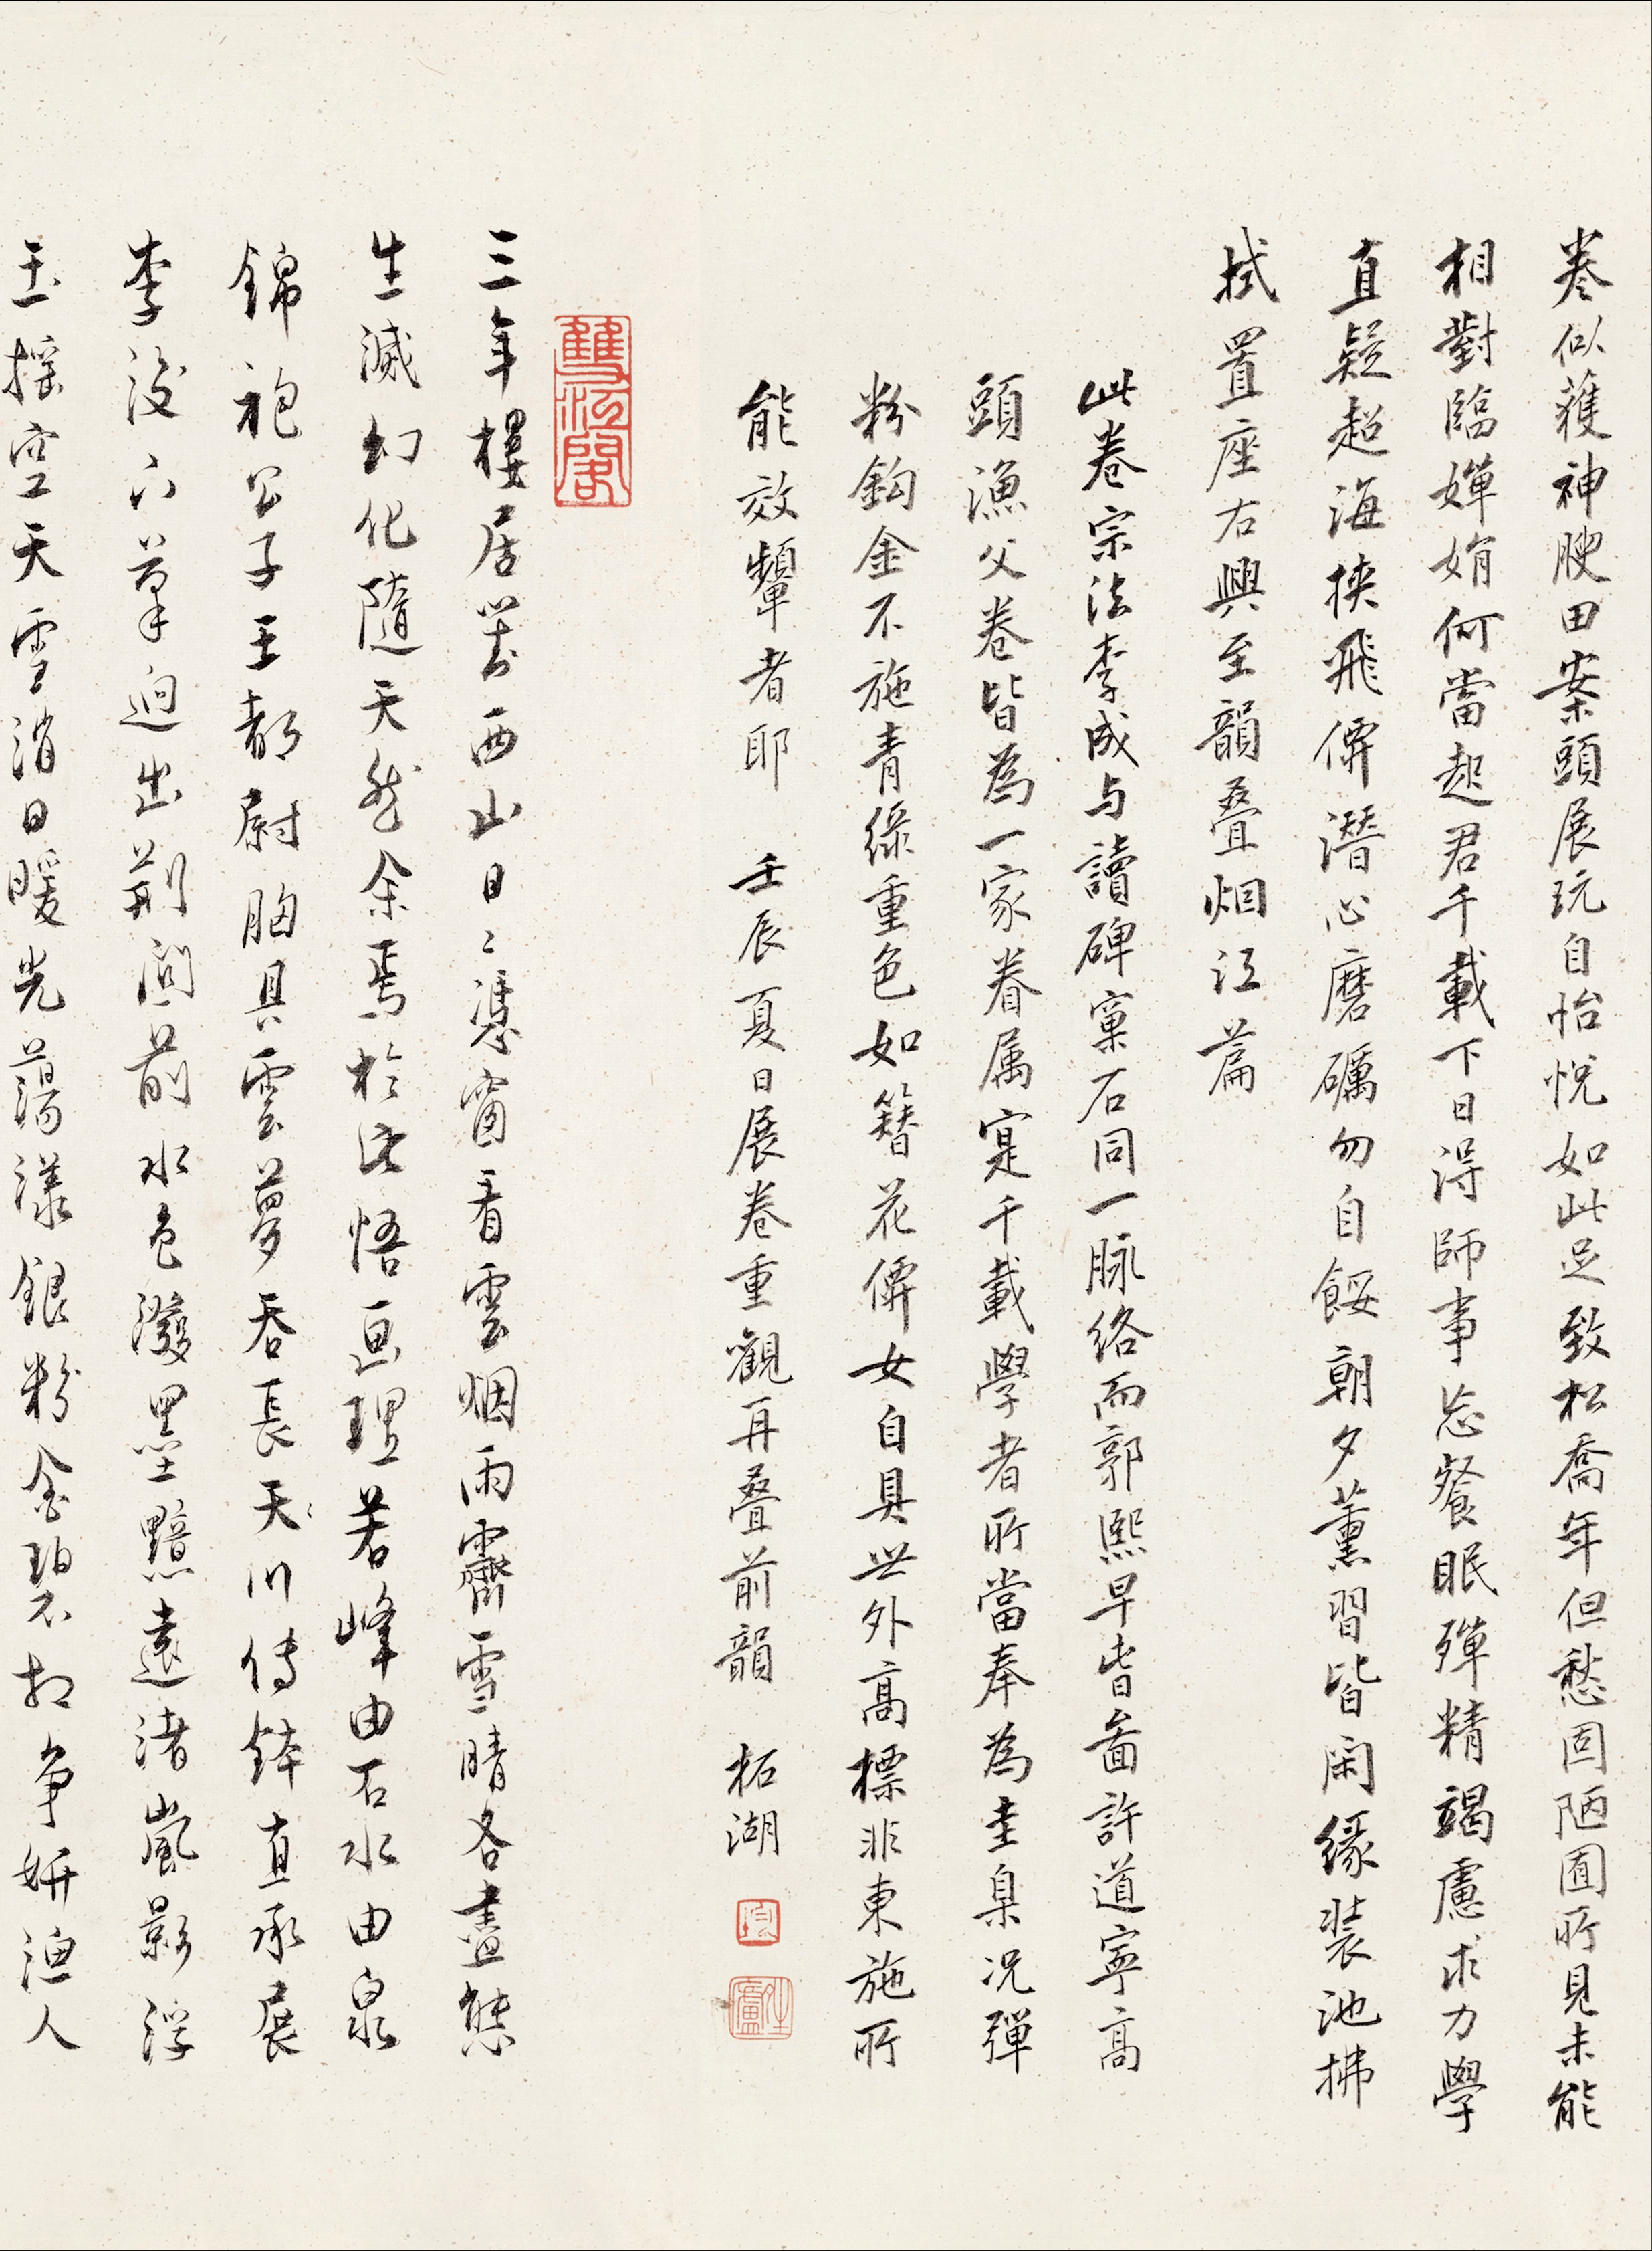 卷似獲神腴田案頭展玩自怡悅如此足致松喬年但愁固陋囿所見未能
相對臨嬋娟何當起君千載下日得師事忘餐眠殫精竭慮求力學
直疑超海挾飛僊潛心磨礪勿自餒朝夕薰習皆閑緣裝池拂
拭置座右興至韻叠烟江篇
此卷宗法李成与讀碑窠石同一脉絡而郭熙早春啚許道寧高
頭漁父卷皆為一家眷属寔千載學者所當奉為圭臬况彈
粉鈎金不施青綠重色如簪花僊女自具世外高標非東施所
能效顰者耶 壬辰夏日展卷重觀再叠前韻 柘湖
三年樓居對西山日〻憑窗看雲烟雨霽雪晴各盡態
生滅幻化隨天然余焉於此悟画理若峰由石水由泉
錦袍公子王都尉胸具雲夢吞長天〻川傳鉢直承展
李後下筆迥出荊關前水色潑墨黯遠渚嵐影浮
玉搖空天雪消日暖光蕩漾銀粉金碧不相争妍漁人